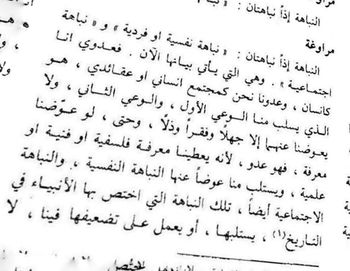 مراوغة
النباهة إذاً نباهتان : « نباهة نفسية او فردية » و « نباهة
اجتماعية » . وهي التي يأتي بيانها الآن . فعدوي انا
كانسان ، وعدونا نحن كمجتمع انساني او عقائدي ، هو
الذي يسلب منا الوعي الأول ، والوعي الثاني ، ولا
يعوضنا عنهما إلا جهلاً وفقراً وذلاً ، وحتى ، لو عوّضنا
معرفة ، فهو عدو ، لأنه يعطينا معرفة فلسفية او فنية او
علمية ، ويستلب منا عوضاً عنها النباهة النفسية ، والنباهة
الاجتماعية أيضاً ، تلك النباهة التي اختص بها الأنبياء في
التاريخ(١) ، يستلبها ، أو يعمل على تضعيفها فينا ، لا